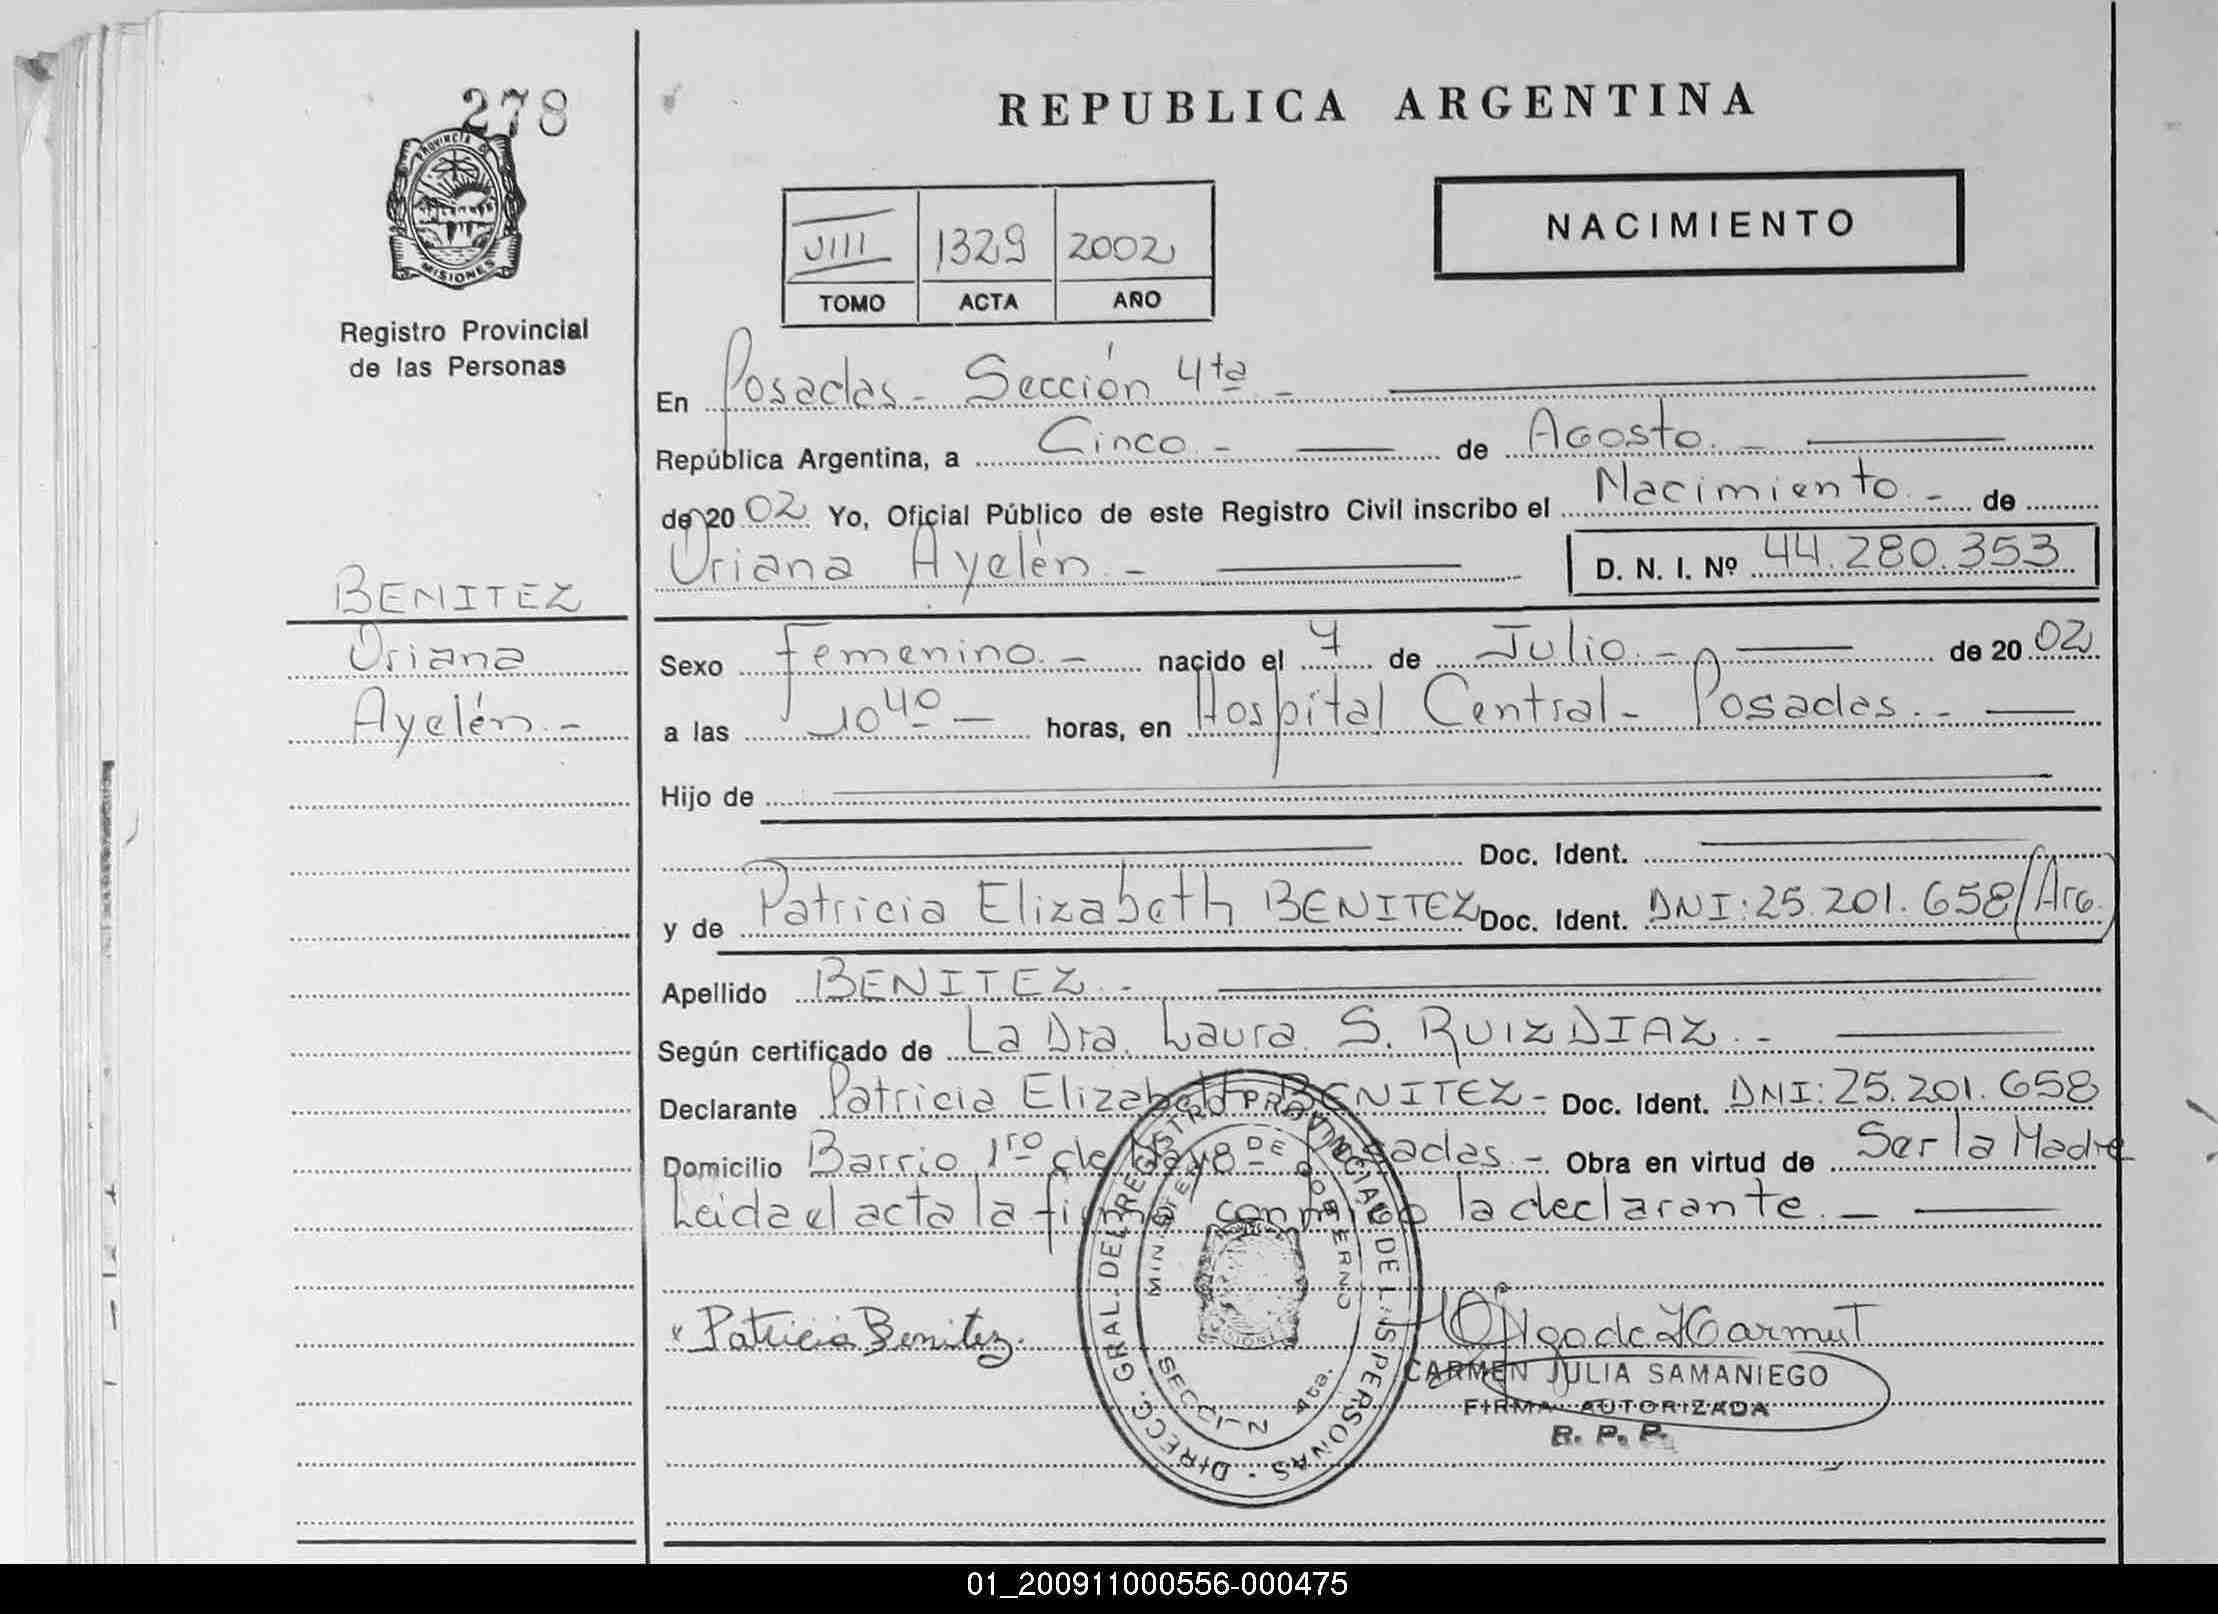 278
PROVINCIA DE
MISIONES
Registro Provincial
de las Personas
BENITEZ
Oriana
Ayelén.-
REPUBLICA ARGENTINA
NACIMIENTO
VIII 1329 2002
TOMO ACTA AÑO
En Posadas - Sección 4ta -
República Argentina, a Cinco.- de Agosto.-
de 20 02 Yo, Oficial Público de este Registro Civil inscribo el Nacimiento.- de
Oriana Ayelén.- D. N. I. Nº 44.280.353
Sexo Femenino.- nacido el 4 de Julio.- de 20 02
a las 10 40 - horas, en Hospital Central - Posadas.-
Hijo de
Doc. Ident.
y de Patricia Elizabeth BENITEZ Doc. Ident. DNI: 25.201.658/Arg.
Apellido BENITEZ.-
Según certificado de La Dra. Laura S. RUIZ DIAZ.-
Declarante Patricia Elizabeth BENITEZ- Doc. Ident. DNI: 25.201.658
Domicilio Barrio 1ro de Mayo Posadas.- Obra en virtud de Ser la Madre
Leida el acta la firma conmigo la declarante.-
Patricia Benitez.
DIRECC. GRAL. DEL REGISTRO PROVINCIAL DE LAS PERSONAS -
MINISTERIO DE GOBIERNO
SECCION 4ta.
CARMEN JULIA SAMANIEGO
FIRMA AUTORIZADA
R. P. P.
01_200911000556-000475